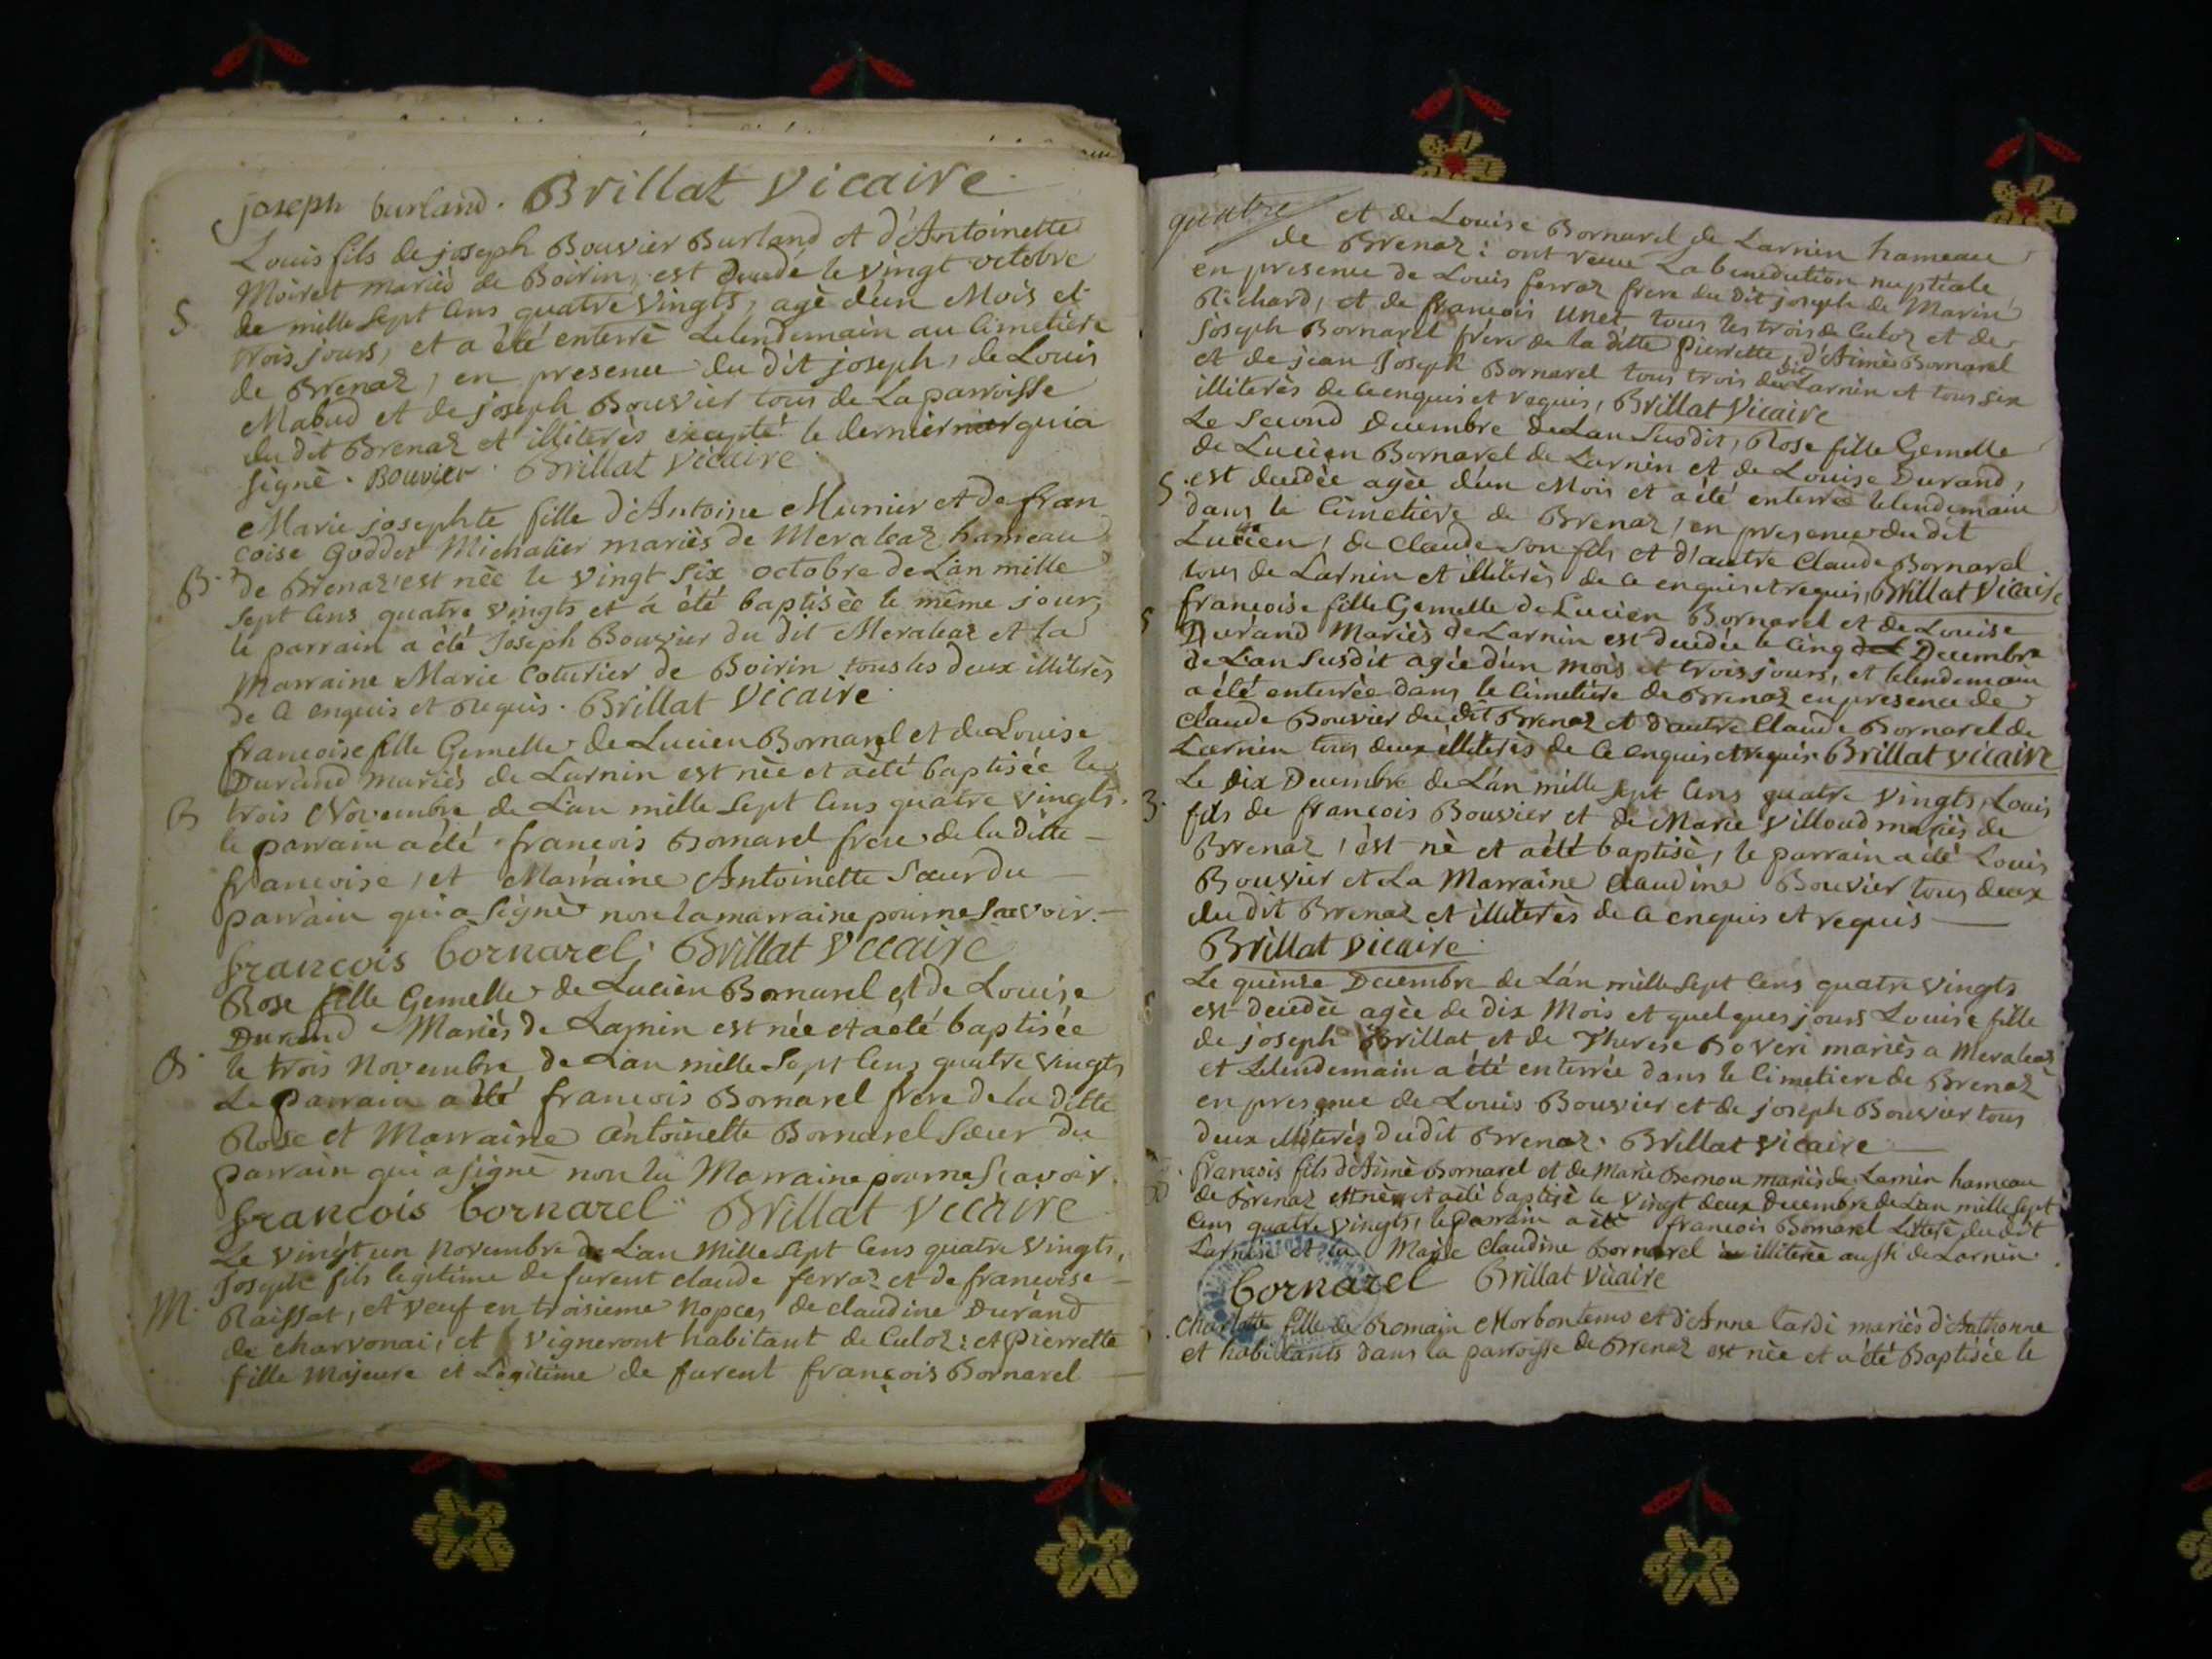 joseph burland. Brillat Vicaire
Louis fils de joseph Bouvier Burland et d'Antoinette
Moiret mariès de Boirin, est decedé le vingt octobre
S. de mille sept cens quatre vingts, agè d'un Mois et
trois jours, et a été enterrè Lelendemain au Cimetiere
de Brenaz, en presence du dit joseph, de Louis
Mabud et de joseph Bouvier tous de La parroisse
du dit Brenaz et illiterès excepté le dernier qui a
signè. Bouvier. Brillat Vicaire
Marie josephte fille d'Antoine Munier et de fran
coise Goddet Michalier mariès de Meraleaz hameau
B. de Brenaz est nèe le vingt six octobre de L'an mille
sept cens quatre vingts et a été baptisèe le même jour,
le parrain a été Joseph Bouvier du dit Meraleaz et la
Marraine Marie Coturier de Boirin tous les deux illiterès
de ce enquis et Requis. Brillat Vicaire
francoise fille Gemelle de Lucien Bornarel et de Louise
Durand Mariès de Larnin est nèe et a été baptisée le
B trois Novembre de L'an mille sept cens quatre vingts.
le parrain a été francois Bornarel frere de la ditte
francoise, et Marraine Antoinette Sœur du
parrain qui a signè non la marraine pour ne scavoir.
francois bornarel. Brillat Vicaire
Rose fille Gemelle de Lucien Bornarel et de Louise
Durand Mariès de Larnin est née et a été baptisée
B. le trois Novembre de L'an mille sept cens quatre vingts
Le Parrain a été francois Bornarel frere de la ditte
Rose et Marraine Antoinette Bornarel Sœur du
parrain qui a signè non la Marraine pour ne Scavoir.
francois bornarel Brillat Vicaire
Le vingt un Novembre de L'an Mille sept cens quatre vingts,
Joseph fils legitime de furent claude ferraz et de francoise
M. Raissat, et veuf en troisieme Nopces de claudine Durand
de charvonai, et Vigneront habitant de Culoz: et Pierrette
fille Majeure et Legitime de furent francois Bornarel
quatre et de Louise Bornarel de Larnin hameau
de Brenaz: ont receu La benediction nuptiale
en presence de Louis ferraz frere du dit joseph de Marin
Richard, et de francois Unet tous les trois de Culoz et de
joseph Bornarel frere de la ditte Pierrette, d'Aimès Bornarel
et de jean Joseph Bornarel tous trois du dit Larnin et tous six
illiterès de ce enquis et requis, Brillat Vicaire
Le Second Decembre de L'an Susdit, Rose fille Gemelle
de Lucien Bornarel de Larnin et de Louise Durand,
S. est decedèe agèe d'un Mois et a été enterrée lelendemain
dans le Cimetiere de Brenaz, en presence du dit
Lucien, de Claude son fils et d'autre Claude Bornarel
tous de Larnin et illiterès de ce enquis et requis, Brillat Vicaire
S francoise fille Gemelle de Lucien Bornarel et de Louise
Durand Mariès de Larnin est decedée le cinq Decembre
de L'an Susdit agée d'un mois et trois jours, et lelendemain
a été enterrée dans le cimetiere de Brenaz en presence de
Claude Bouvier du dit Brenaz et d'autre Claude Bornarel de
Larnin tous deux illiterès de ce enquis et requis. Brillat Vicaire
Le Dix Decembre de L'an mille sept cens quatre vingts, Louis
B. fils de francois Bouvier et de Marie Villoud mariès de
Brenaz, est nè et a été baptisè, le parrain a été Louis
Bouvier et La Marraine Claudine Bouvier tous deux
du dit Brenaz et illiterès de ce enquis et requis
Brillat Vicaire
Le quinse Decembre de L'an mille sept cens quatre vingts
est decedèe agèe de dix Mois et quelques jours Louise fille
de joseph Brillat et de Therese Boveri mariès a Meraleaz
et Lelendemain a été enterrée dans le Cimetiere de Brenaz
en presence de Louis Bouvier et de joseph Bouvier tous
deux illiterés du dit Brenaz. Brillat Vicaire
francois fils d'Aimè Bornarel et de Marie Bernou mariès de Larnin hameau
de Brenaz est nè et a été baptisè le vingt deux Decembre de L'an mille sept
cens quatre vingts, le Parrain a été francois Bornarel Literè du dit
Larnin et la Claudine Bornarel illiterèe aussi de Larnin.
bornarel Brillat Vicaire
Charlotte fille de Romain Morbontems et d'Anne tardi mariès d'Anthonne
et habitants dans la parroisse de Brenaz est nèe et a été Baptisée le